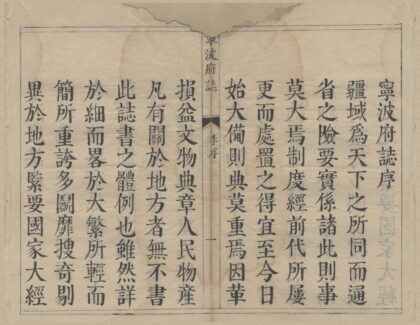 寧波府誌序
疆域爲天下之所同而通
省之險要實係諸此則事
莫大焉制度經前代所屢
更而處置之得宜至今日
始大備則典莫重焉因革
寧波府誌
李序
一
損益文物典章人民物産
凡有關於地方者無不書
此誌書之體例也雖然詳
於細而畧於大繁所輕而
簡所重誇多鬭靡搜奇剔
異於地方緊要國家大經